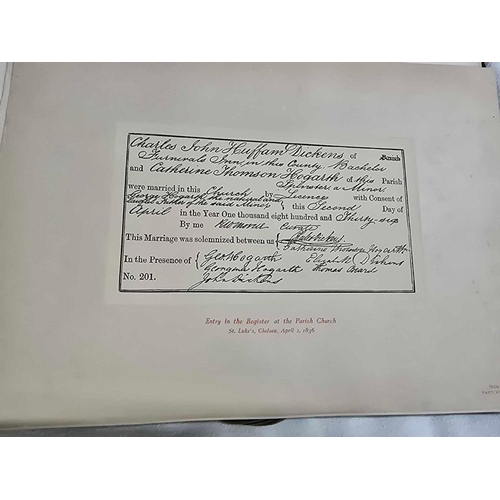 Charles John Huffam Dickens of Parish
Furnivals Inn, in this County, Bachelor
and Catherine Thomson Hogarth of this Parish
Spinster a Minor
were married in this Church by Licence with Consent of
George Hogarth the natural and
Lawful Father of the said Minor this Second Day of
April in the Year One thousand eight hundred and Thirty-six
By me Curate
This Marriage was solemnized between us
Catherine Thomson Hogarth
In the Presence of Geo Hogarth Elizabeth Dickens
Georgina Hogarth Thomas Beard
No. 201. John Dickens
Entry in the Register at the Parish Church
St. Luke's, Chelsea, April 2, 1836